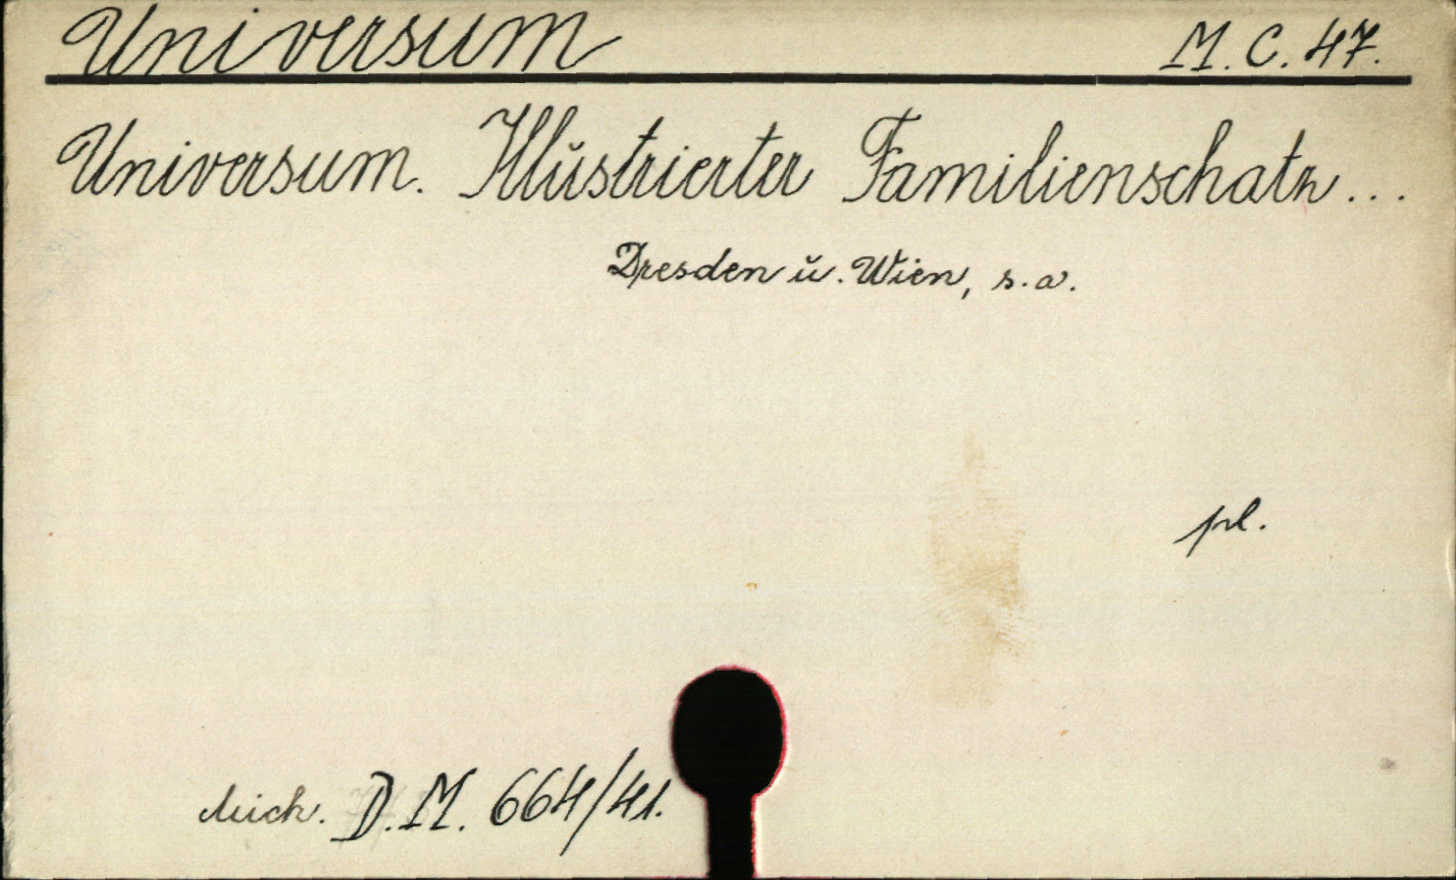 Universum M. C. 47.
Universum. Illŭstrierter Familienschatz...
Dresden ŭ. Wien, s. a.
pl.
D. M. 664/41.